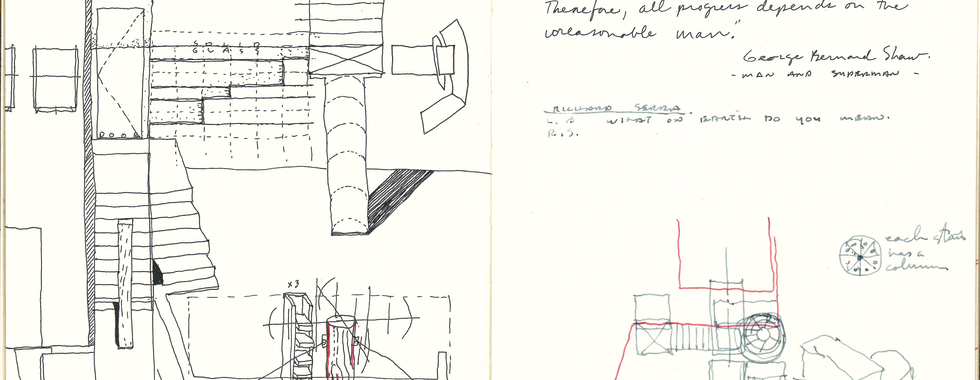 x3
Therefore, all progress depends on the
unreasonable man."
George Bernard Shaw.
- MAN AND SUPERMAN -
RICHARD SERRA.
WHAT ON EARTH DO YOU MEAN.
R.S.
each stair
has a
column